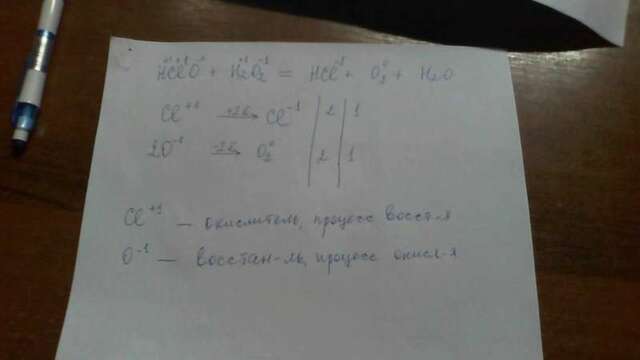 HClO + H₂O₂ = HCl + O₂ + H₂O
Cl⁺¹ +2e→ Cl⁻¹ | 2 | 1
2O⁻¹ -2e→ O₂⁰ | 2 | 1
Cl⁺¹ — окислитель, процесс восст-я
O⁻¹ — восстан-ль, процесс окисл-я